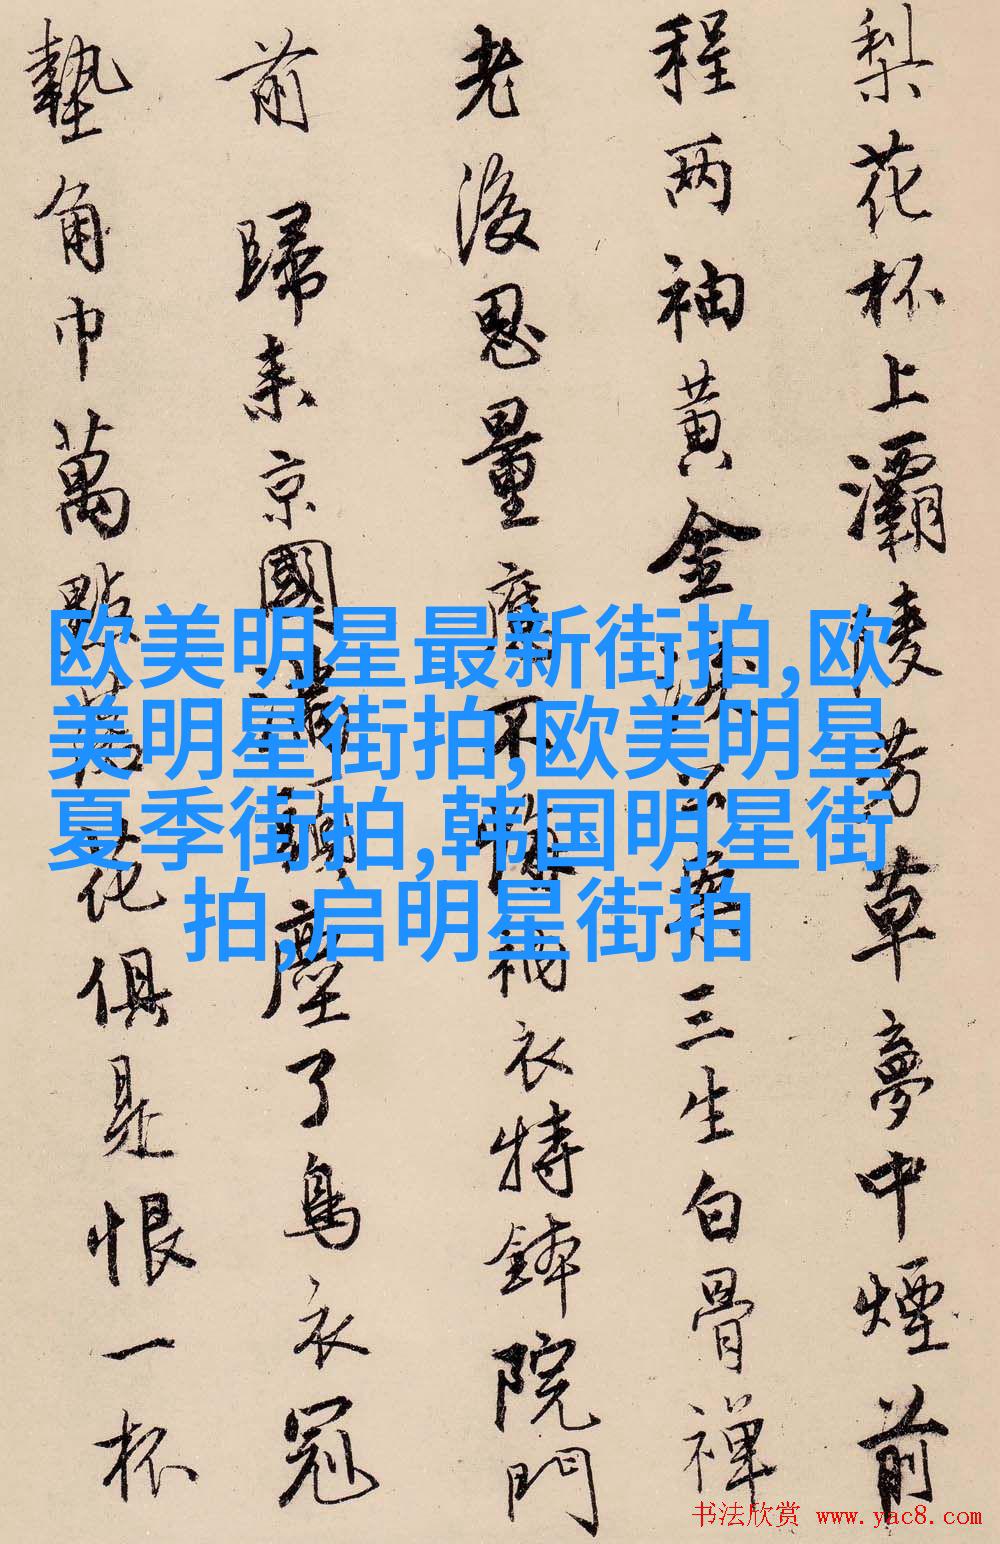 梨花杯上灞陵芳草夢中煙前
程两袖黄金三生白骨禪
老後思量不衲衣持鉢院門
前 歸来京國塵了烏衣冠
墊角巾萬點花俱是恨一杯
欧美明星最新街拍,欧
美明星街拍,欧美明星
夏季街拍,韩国明星街
拍,启明星街拍
书法欣赏 www.yac8.com